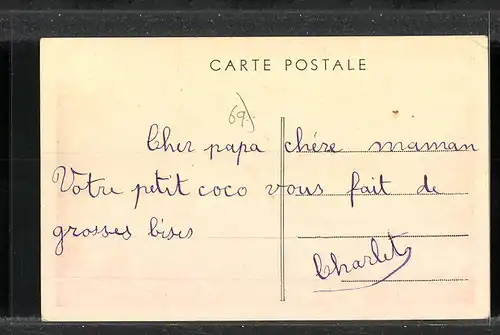 CARTE POSTALE
69
Cher papa chére maman
Votre petit coco vous fait de
grosses bises
Charlet